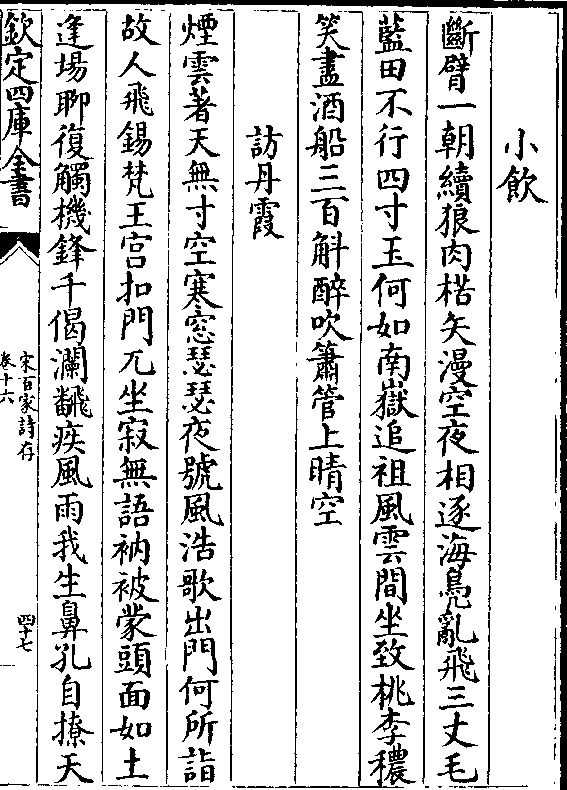 小飲
斷臂一朝續狼肉楛矢漫空夜相逐海鳬亂飛三丈毛
藍田不行四寸玉何如南嶽追祖風雲間坐致桃李穠
笑盡酒船三百斛醉吹簫管上晴空
訪丹霞
煙雲著天無寸空寒窓瑟瑟夜號風浩歌出門何所詣
故人飛錫梵王宫扣門兀坐寂無語衲被蒙頭面如土
逢場聊復觸機鋒千偈瀾飜疾風雨我生鼻孔自撩天
欽定四庫全書
宋百家詩存
卷十六
四十七